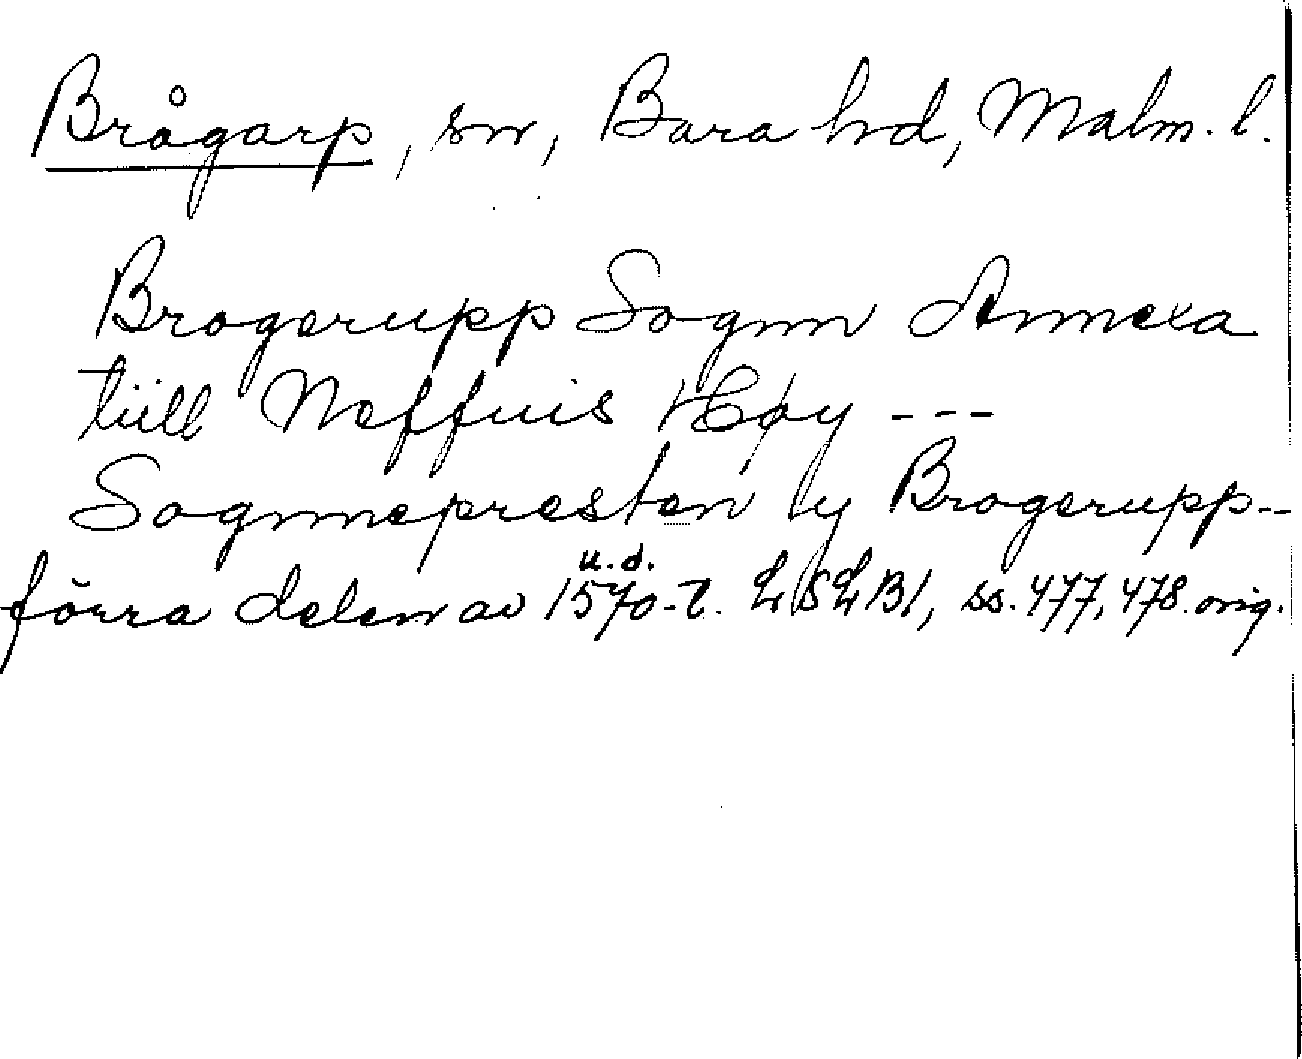 Brågarp, sn, Bara hd, Malm. l.
Brogerupp Sognn Annexa
tiill Neffuis Høy ---
Sognnepresten ij Brogerupp--
u. d.
förra delen av 1570-t. LSLB1, ss. 477, 478. orig.